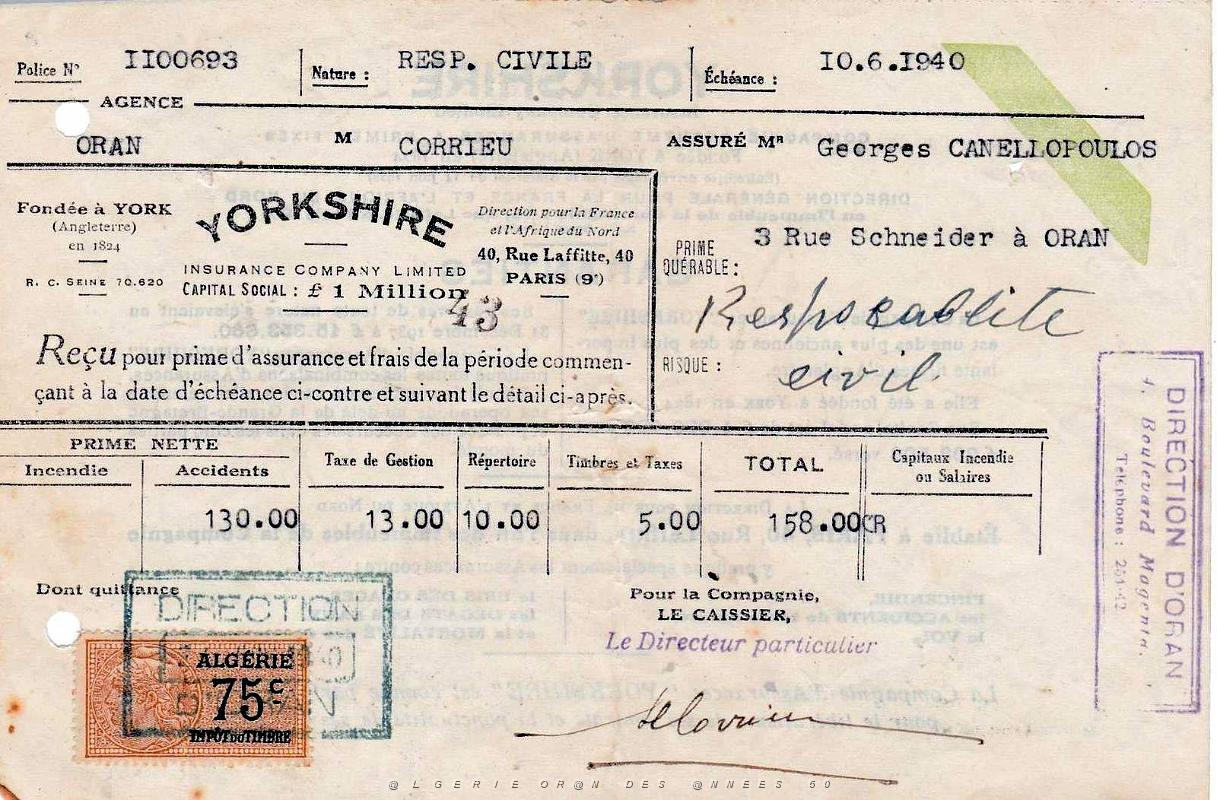 Police Nº II00693 Nature : RESP. CIVILE Échéance : IO.6.I940
AGENCE
ORAN M CORRIEU ASSURÉ Mʳ Georges CANELLOPOULOS
Fondée à YORK
(Angleterre)
en 1824
R. C. SEINE 70.620
YORKSHIRE
INSURANCE COMPANY LIMITED
CAPITAL SOCIAL : £ 1 Million
43
Direction pour la France
et l'Afrique du Nord
40, Rue Laffitte, 40
PARIS (9ᵉ)
Reçu pour prime d'assurance et frais de la période commen-
çant à la date d'échéance ci-contre et suivant le détail ci-après.
3 Rue Schneider à ORAN
PRIME
QUÉRABLE :
RISQUE :
civil
PRIME NETTE
Incendie Accidents Taxe de Gestion Répertoire Timbres et Taxes TOTAL Capitaux Incendie
ou Salaires
130.00 13.00 10.00 5.00 158.00CR
Dont quittance
DIRECTION
ALGÉRIE
75c
IMPÔT DU TIMBRE
Pour la Compagnie,
LE CAISSIER,
Le Directeur particulier
DIRECTION D'ORAN
4, Boulevard Magenta.
Téléphone : 251-42
@LGERIE OR@N DES @NNEES 50